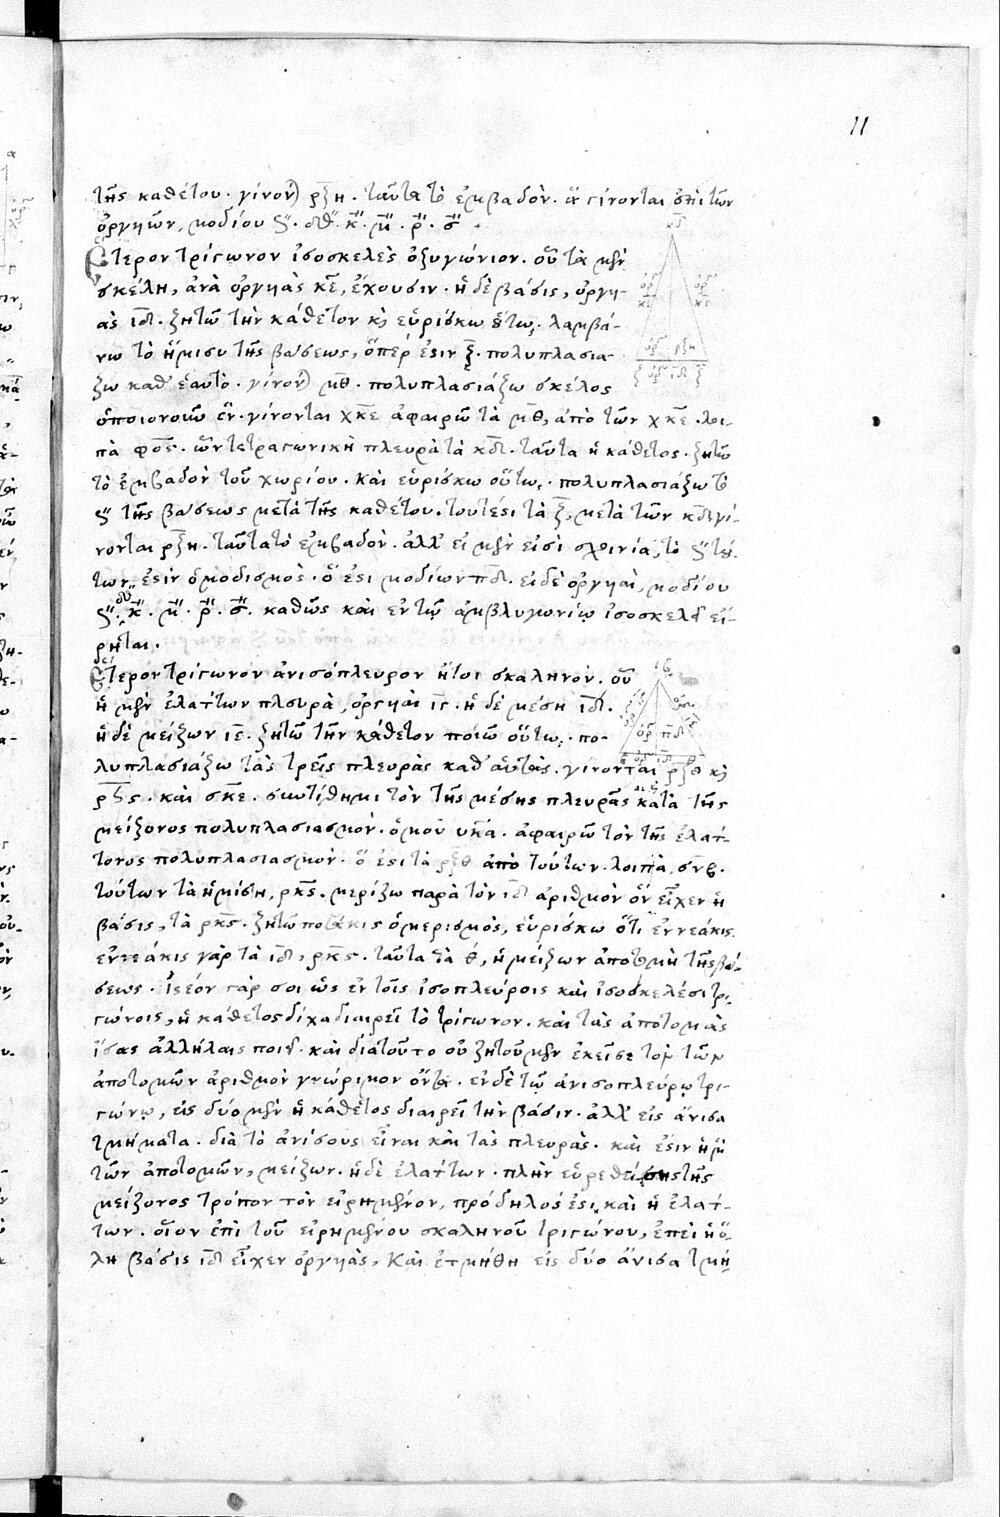 11
τῆς καθέτου· γίνον) ρξη· ταῦτα τὸ ἐμβαδὸν· ἃ γίνονται ἐπὶ τῶν
ὀργηῶν, μοδίου
Ἕτερον τρίγωνον ἰσοσκελὲς ὀξυγώνιον· οὗ τὰ μὲν
σκέλη, ἀνὰ ὀργηὰς κε, ἔχουσιν· ἡ δὲ βάσις, ὀργη-
ὰς ιδ· ζητῶ τὴν κάθετον κὶ εὑρίσκω οὕτως· λαμβά-
νω τὸ ἥμισυ τῆς βάσεως, ὅπέρ ἐστιν ζ· πολυπλασιά-
ζω καθ' ἑαυτὸ· γίνον) μθ· πολυπλασιάζω σκέλος
ὁποιονοῦν ἓν· γίνονται χκε ἀφαιρῶ τὰ μθ, ἀπὸ τῶν χκε· λοι-
πὰ φος· ὧν τετραγωνικὴ πλευρὰ τὰ κδ· ταῦτα ἡ κάθετος· ζητῶ
τὸ ἐμβαδὸν τοῦ χωρίου· καὶ εὑρίσκω οὕτως· πολυπλασιάζω τὸ
ς'' τῆς βάσεως μετὰ τῆς καθέτου· τουτέστι τὰ ζ, μετὰ τῶν κδ· γί-
νονται ρξη· ταῦτα τὸ ἐμβαδὸν· ἀλλ' εἰ μὲν εἰσὶ σχοινία, τὸ ς'' τού-
των, ἐστὶν ὁ μοδισμὸς· ὅ ἐστι μοδίων πδ· εἰ δὲ ὀργηαὶ, μοδίου
ς''· κ''· μ''· ρ''· σ''· καθὼς καὶ ἐν τῷ ἀμβλυγωνίῳ ἰσοσκελεῖ εἴ-
ρηται·
Ἕτερον τρίγωνον ἀνισόπλευρον ἤτοι σκαληνὸν· οὗ
ἡ μὲν ἐλάττων πλευρὰ, ὀργηαὶ ιγ· ἡ δὲ μέση ιδ·
ἡ δὲ μείζων ιε· ζητῶ τὴν κάθετον ποιῶ οὕτως· πο-
λυπλασιάζω τὰς τρεῖς πλευρὰς καθ' αὑτὰς· γίνονται ρξθ κὶ
ρϟς· καὶ σκε· συντίθημι τὸν τῆς μέσης πλευρᾶς κατὰ τῆς
μείζονος πολυπλασιασμὸν· ὁμοῦ υκα· ἀφαιρῶ τὸν τῆς ἐλάτ-
τονος πολυπλασιασμὸν· ὅ ἐστι τὰ ρξθ ἀπὸ τούτων· λοιπὰ, σνβ·
τούτων τὰ ἡμίση, ρκς· μερίζω παρὰ τὸν ιδ ἀριθμὸν ὃν εἶχεν ἡ
βάσις, τὰ ρκς· ζητῶ ποσάκις ὁ μερισμὸς, εὑρίσκω ὅτι ἐννεάκις·
ἐννεάκις γὰρ τὰ ιδ, ρκς· ταῦτα τὰ θ, ἡ μείζων ἀποτομὴ τῆς βά-
σεως· Ἰστέον γάρ σοι ὡς ἐν τοῖς ἰσοπλεύροις καὶ ἰσοσκελέσι τρι-
γώνοις, ἡ κάθετος δίχα διαιρεῖ τὸ τρίγωνον· καὶ τὰς ἀποτομὰς
ἴσας ἀλλήλαις ποιεῖ· καὶ διατοῦτο οὐ ζητοῦμεν ἐκεῖσε τὸν τῶν
ἀποτομῶν ἀριθμὸν γνώριμον ὄντα· ἐν δὲ τῷ ἀνισοπλεύρῳ τρι-
γώνῳ, εἰς δύο μὲν ἡ κάθετος διαιρεῖ τὴν βάσιν· ἀλλ' εἰς ἄνισα
τμήματα· διὰ τὸ ἀνίσους εἶναι καὶ τὰς πλευρὰς· καὶ ἔστιν ἡ μὲν
τῶν ἀποτομῶν, μείζων· ἡ δὲ ἐλάττων· πλὴν εὑρεθείσης τῆς
μείζονος τρόπον τὸν εἰρημένον, πρόδηλός ἐστι καὶ ἡ ἐλάτ-
των· οἷον ἐπὶ τοῦ εἰρημένου σκαληνοῦ τριγώνου, ἐπεὶ ἡ ὅ-
λη βάσις ιδ εἶχεν ὀργηὰς, Καὶ ἐτμήθη εἰς δύο ἄνισα τμή-